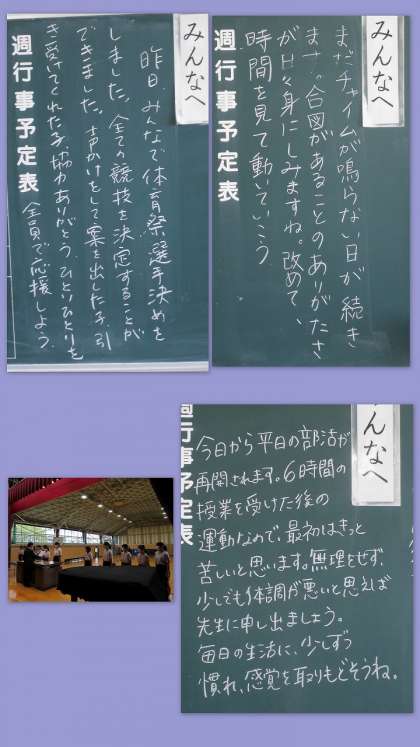 みんなへ
週行事予定表
昨日、みんなで体育祭選手決めを
しました。全ての競技を決定することが
できました。声かけをして案を出した子、引
き受けてくれた子、協力ありがとう。ひとりひとりを
全員で応援しよう。
みんなへ
週行事予定表
まだチャイムが鳴らない日が続き
ます。合図があることのありがたさ
が日々身にしみますね。改めて、
時間を見て動いていこう
んなへ
週行事予定表
今日から平日の部活が
再開されます。6時間の
授業を受けた後の
運動なので、最初はきっと
苦しいと思います。無理をせず、
少しでも体調が悪いと思えば
先生に申し出ましょう。
毎日の生活に、少しずつ
慣れ、感覚を取りもどそうね。